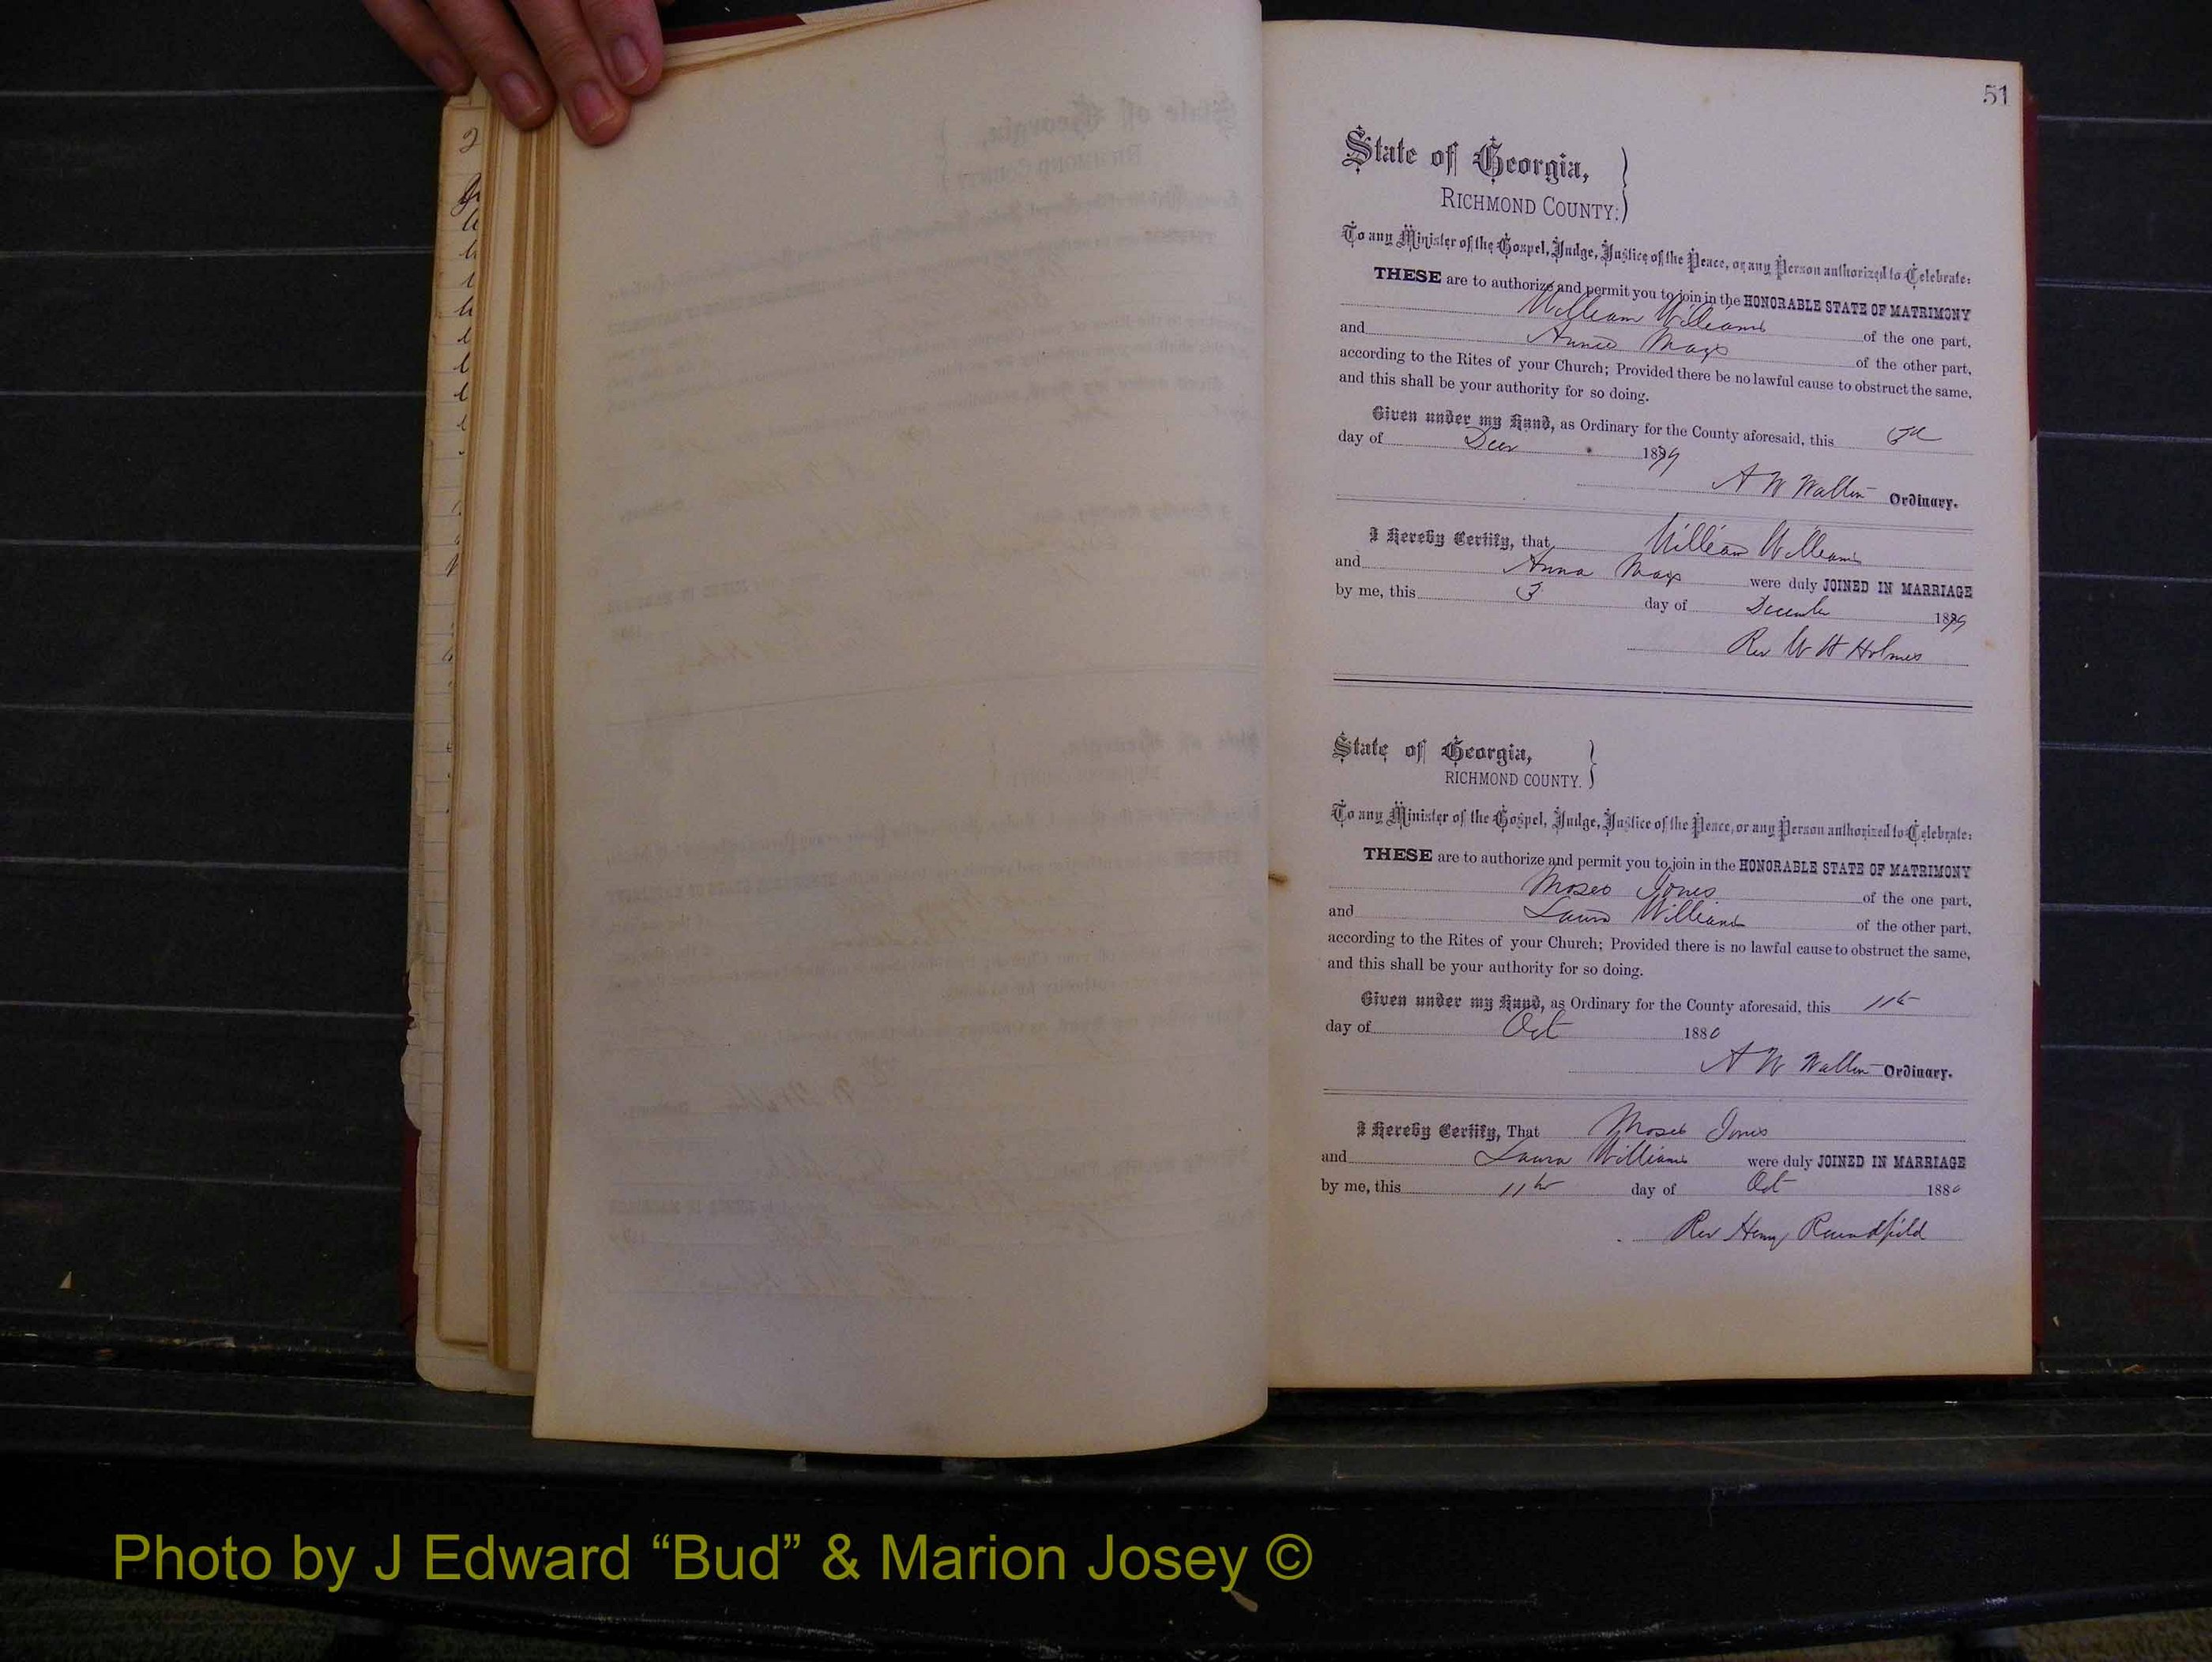 51
State of Georgia,
RICHMOND COUNTY:
To any Minister of the Gospel, Judge, Justice of the Peace, or any Person authorized to Celebrate:
THESE are to authorize and permit you to join in the HONORABLE STATE OF MATRIMONY
William Williams of the one part,
and Annie Mays of the other part,
according to the Rites of your Church; Provided there be no lawful cause to obstruct the same,
and this shall be your authority for so doing.
Given under my Hand, as Ordinary for the County aforesaid, this
day of Decr 1879
A W Walton Ordinary.
I Hereby Certify, that William Williams
and Anna Mays were duly JOINED IN MARRIAGE
by me, this 3 day of December 1879
Rev W H Holmes
State of Georgia,
RICHMOND COUNTY.
To any Minister of the Gospel, Judge, Justice of the Peace, or any Person authorized to Celebrate:
THESE are to authorize and permit you to join in the HONORABLE STATE OF MATRIMONY
Moses Jones of the one part,
and Laura Williams of the other part,
according to the Rites of your Church; Provided there is no lawful cause to obstruct the same,
and this shall be your authority for so doing.
Given under my Hand, as Ordinary for the County aforesaid, this 11th
day of Oct 1880
A W Walton Ordinary.
I Hereby Certify, That Moses Jones
and Laura Williams were duly JOINED IN MARRIAGE
by me, this 11th day of Oct 1880
Rev Henry Roundfield
Photo by J Edward “Bud” & Marion Josey ©